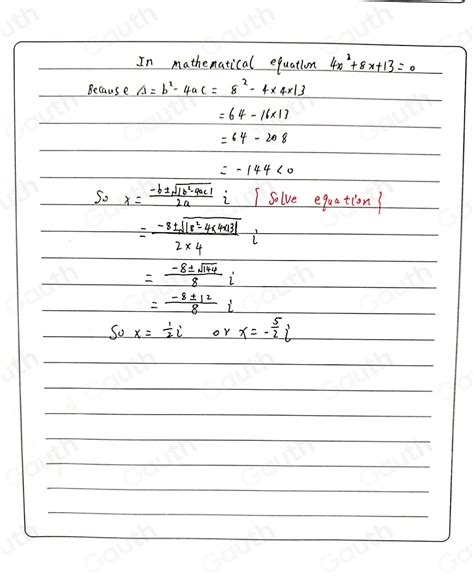 In mathematical equation 4x²+8x+13=0
Because Δ=b²-4ac = 8²-4×4×13
=64-16×13
=64-208
=-144<0
So x= (-b±√|b²-4ac|)/2a i { Solve equation }
= (-8±√|8²-4×4×13|)/2×4 i
= (-8±√144)/8 i
= (-8±12)/8 i
So x= 1/2 i or x=-5/2 i
Gauth